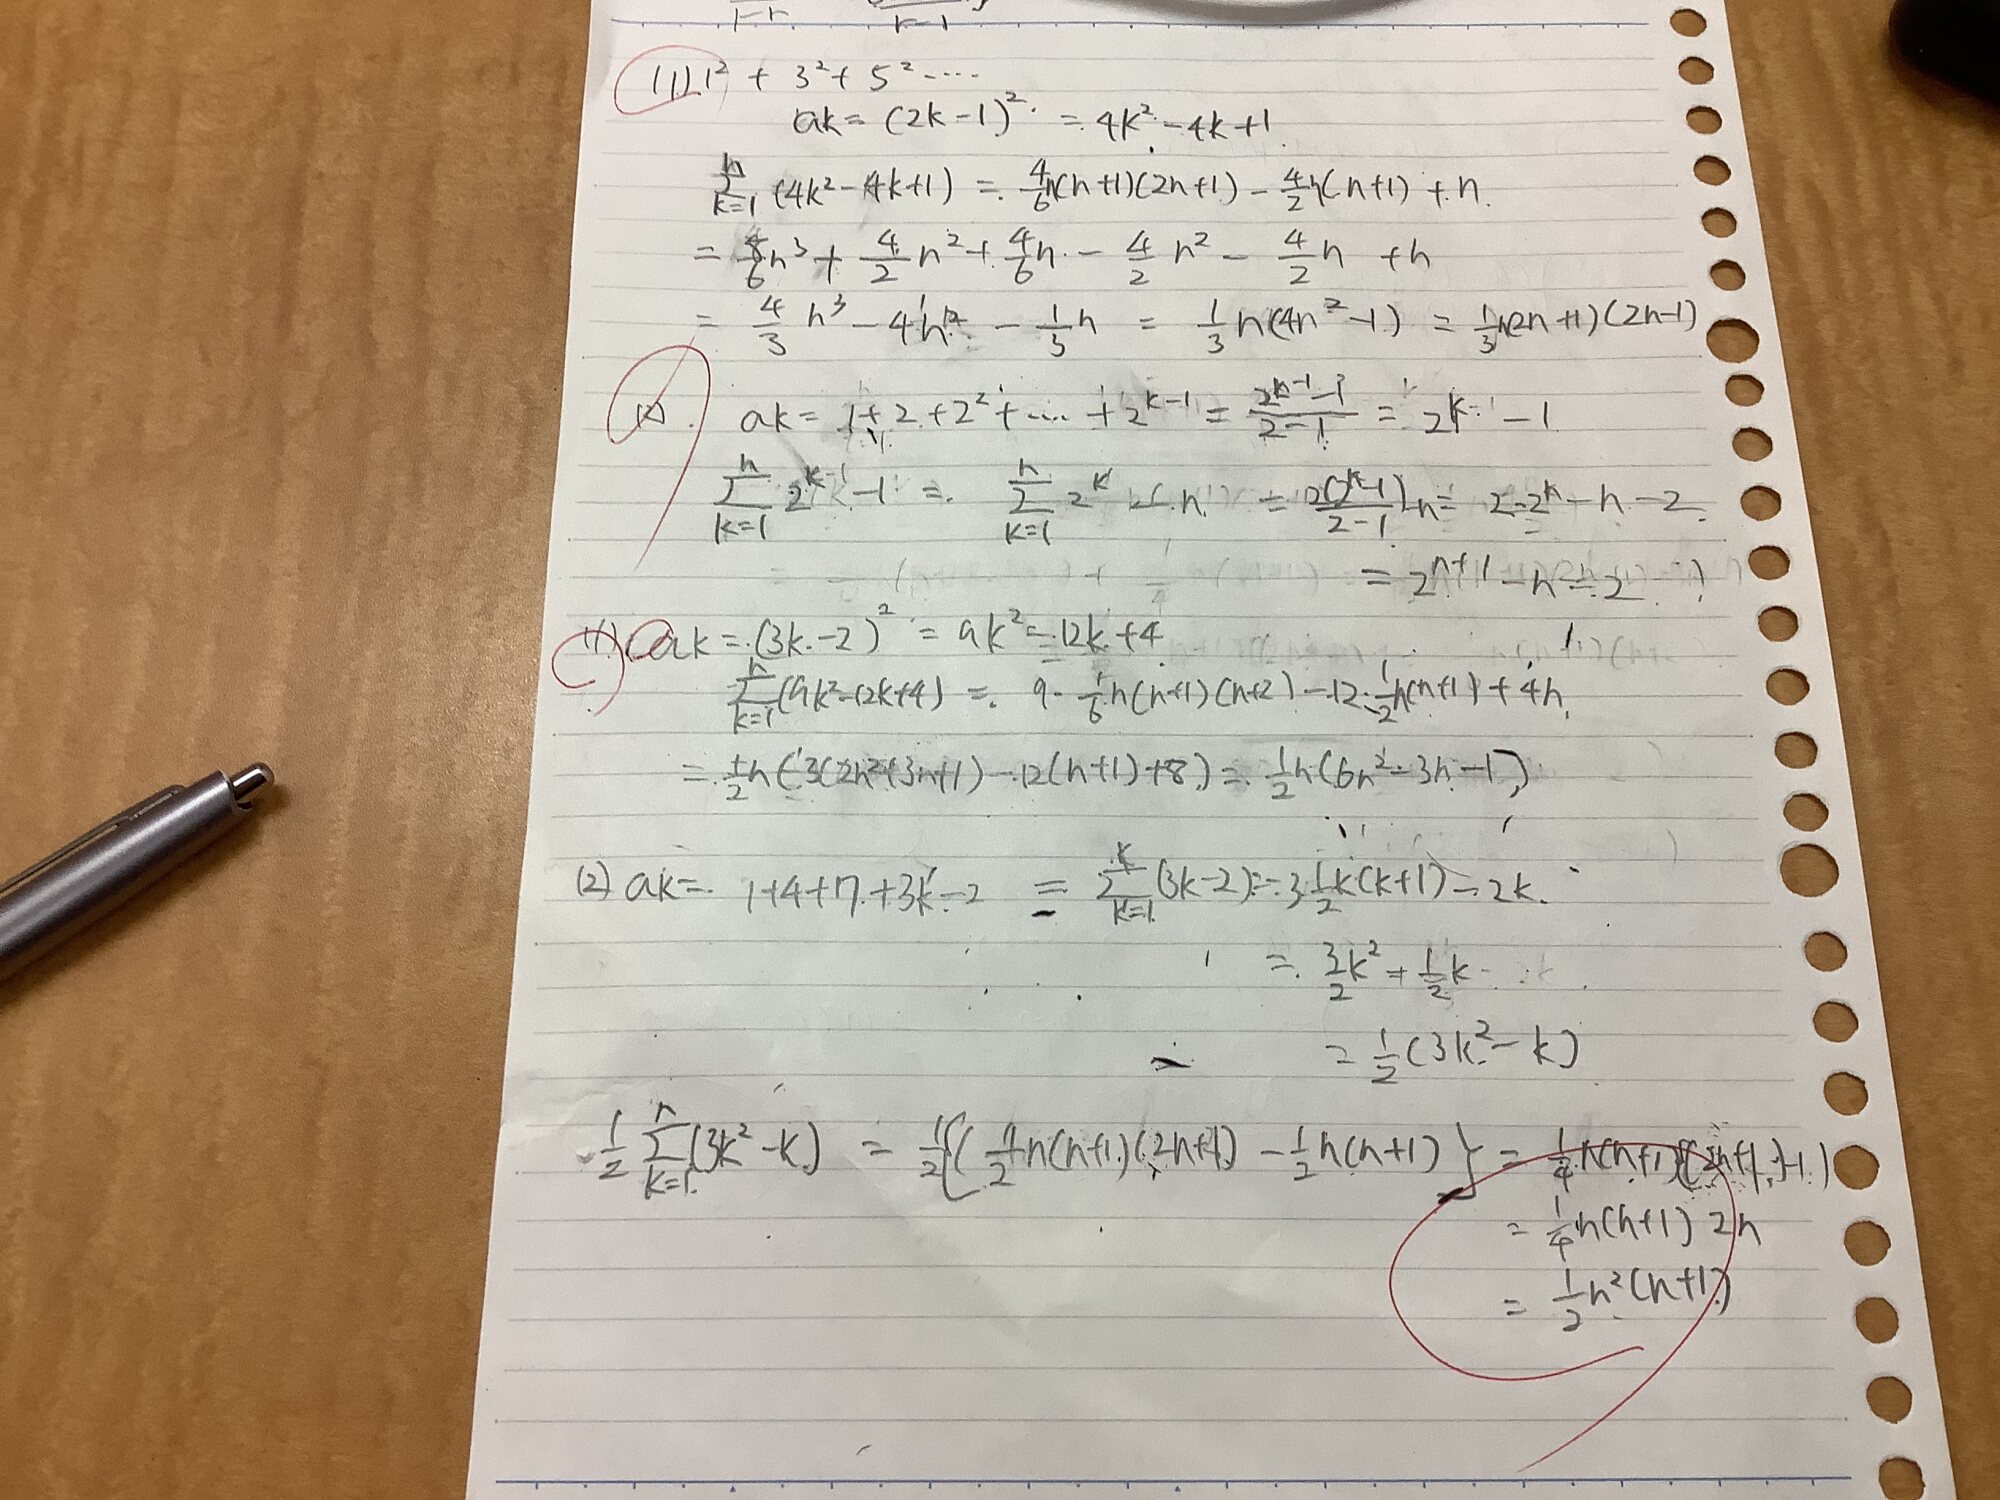 (1) 1² + 3² + 5² ....
ak = (2k-1)² = 4k² - 4k + 1
n Σ k=1 (4k² - 4k + 1) = 4/6 n(n+1)(2n+1) - 4/2 n(n+1) + n
= 8/6 n³ + 4/2 n² + 4/6 n - 4/2 n² - 4/2 n + n
= 4/3 n³ - 4n² - 1/3 n = 1/3 n(4n² - 1) = 1/3 n(2n+1)(2n-1)
(2) ak = 1 + 2 + 2² + .... + 2^(k-1) = = 2^k - 1
n Σ k=1 2^k - 1 = n Σ k=1 2^k - n = 2(2^k - 1)/(2-1) - n = 2·2^k - n - 2
= 2^(n+1) - n - 2
(1) ak = (3k-2)² = 9k² - 12k + 4
n Σ k=1 (9k² - 12k + 4) = 9 · 1/6 n(n+1)(n+2) - 12 · 1/2 n(n+1) + 4n
= 1/2 n(3(2n² + 3n + 1) - 12(n+1) + 8) = 1/2 n(6n² - 3n - 1)
(2) ak = 1 + 4 + 7 + 3k - 2 = k Σ k=1 (3k-2) = 3 1/2 k(k+1) - 2k
= 3/2 k² - 1/2 k
= 1/2 (3k² - k)
1/2 n Σ k=1 (3k² - k) = 1/2 {( 1/2 n(n+1)(2n+1) - 1/2 n(n+1) } = 1/4 n(n+1)(2n+1-1)
= 1/4 n(n+1) 2n
= 1/2 n²(n+1)